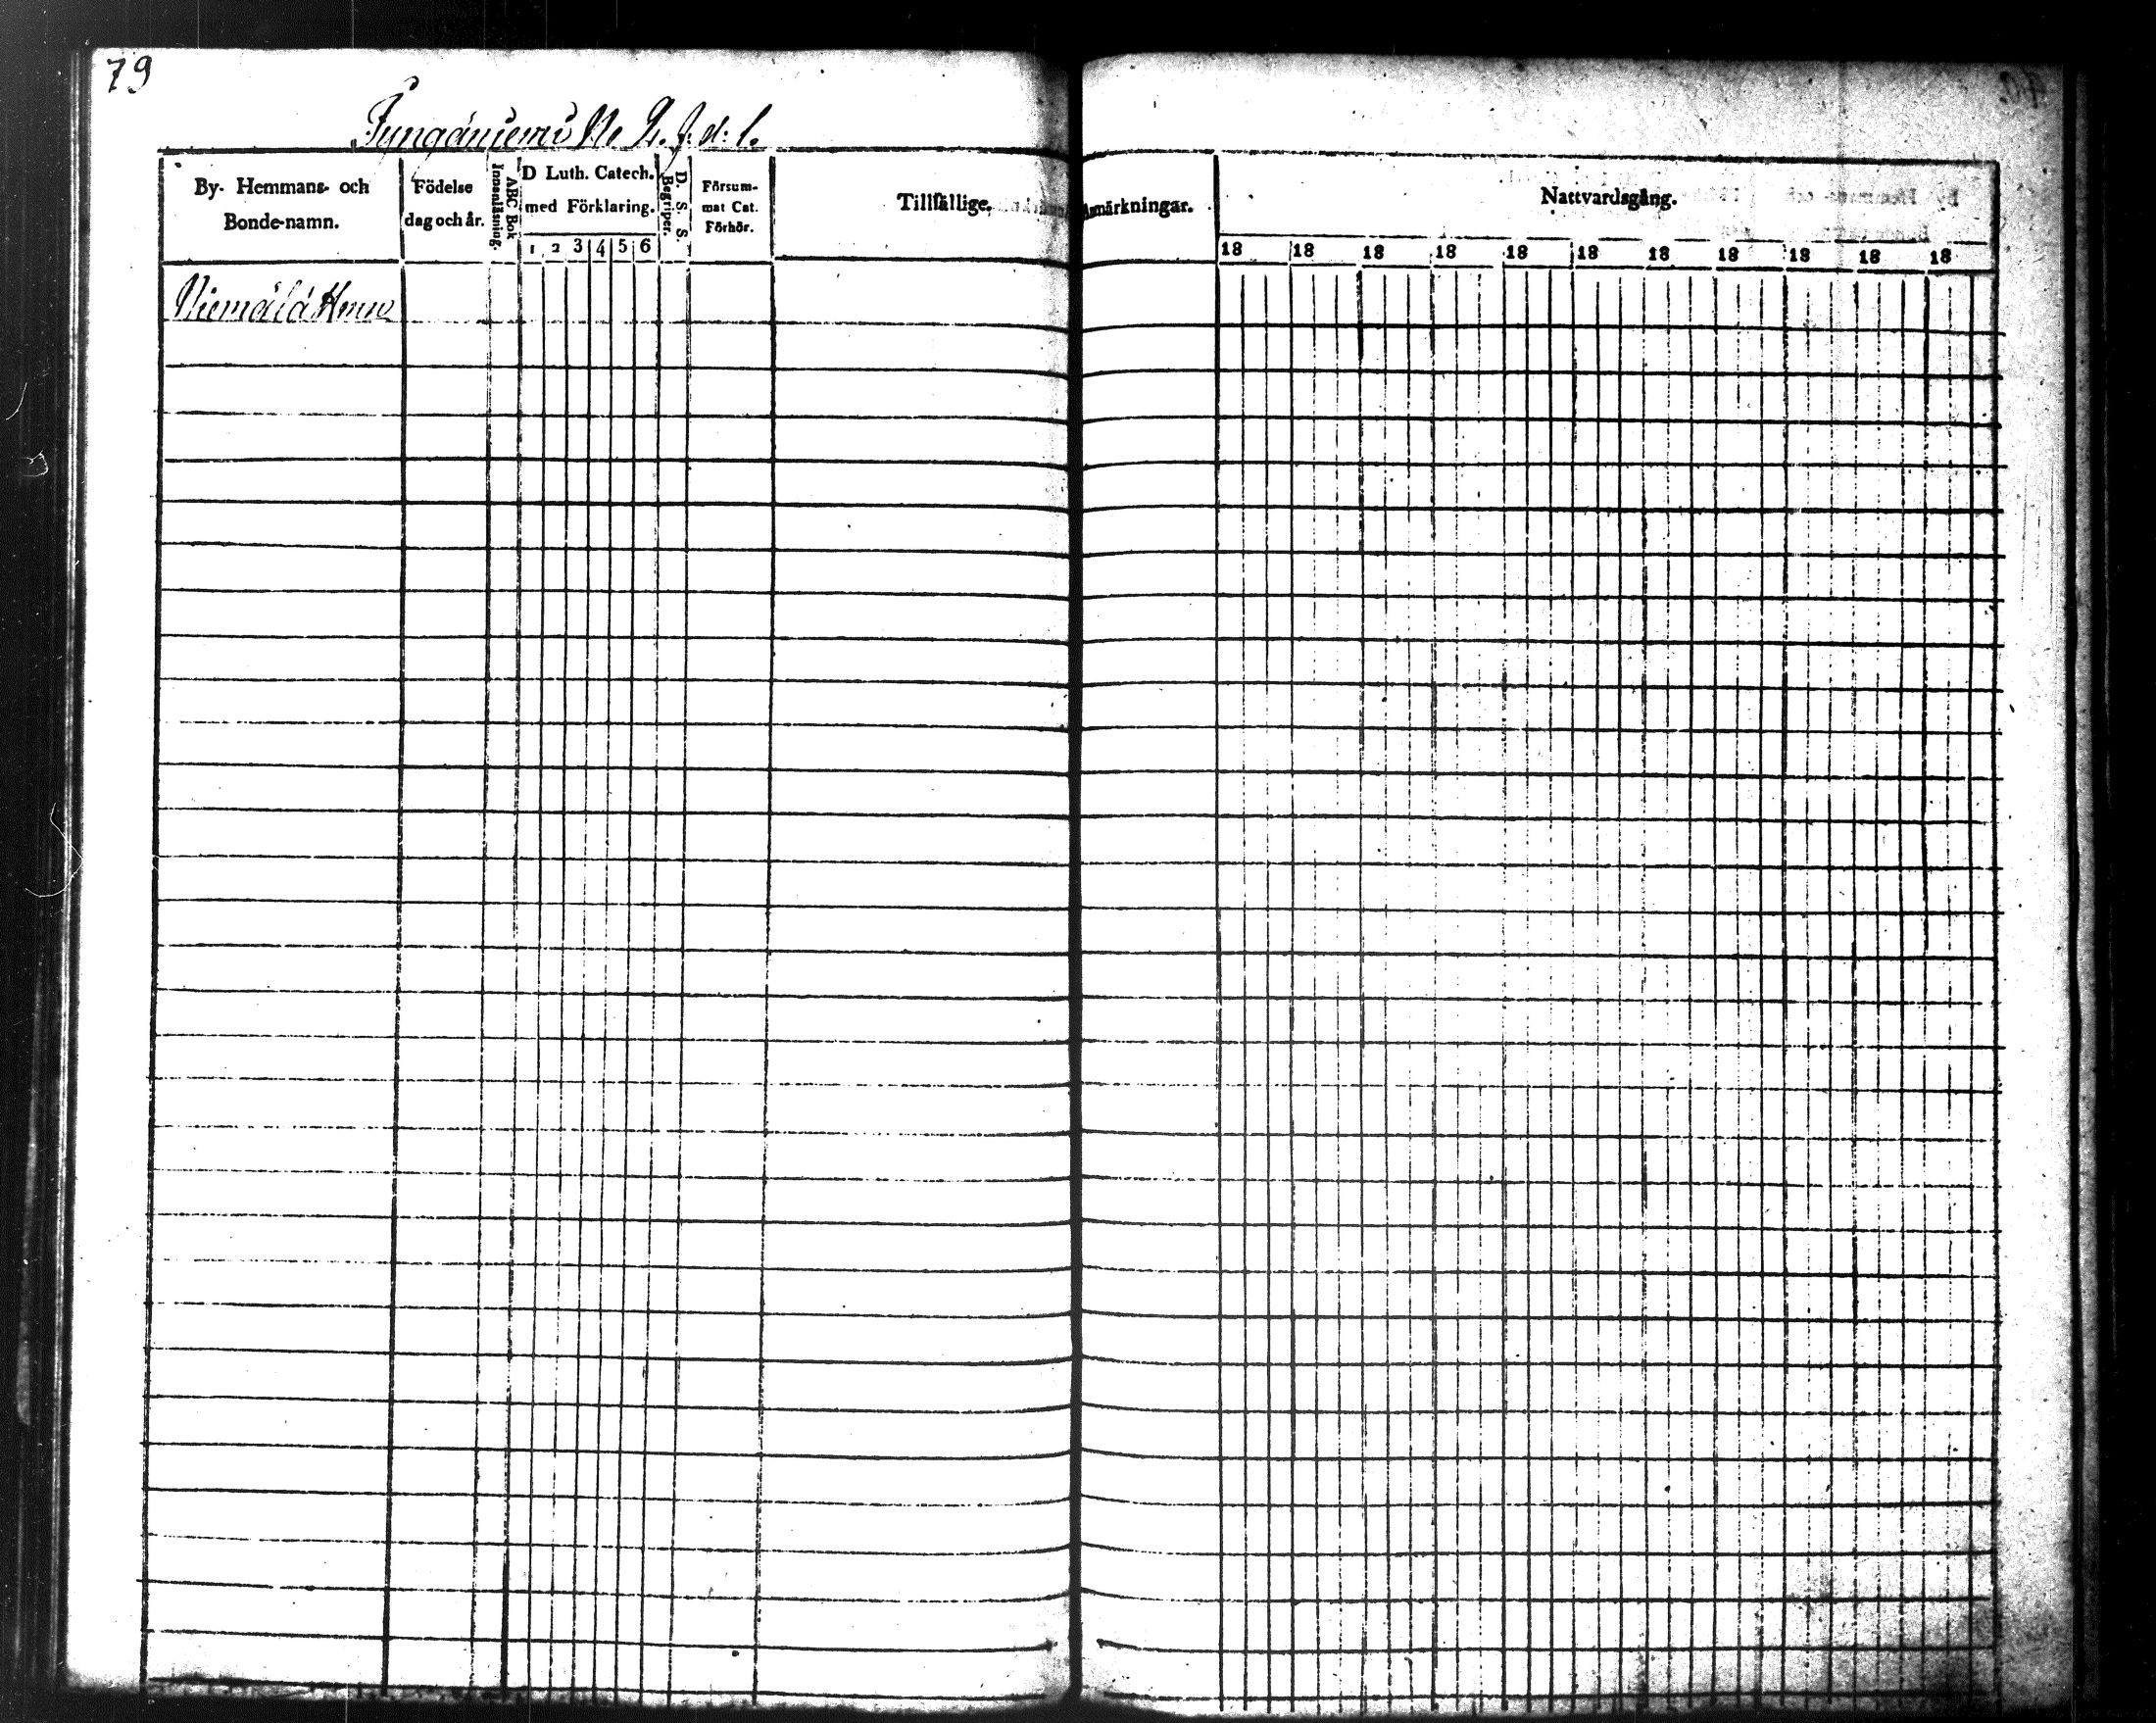 79
Pyngäniemi No 2. f. d: 1.
By- Hemmans- och Bonde-namn.
Födelse dag och år.
ABC Bok Innanläsning.
D Luth. Catech. med Förklaring.
1 2 3 4 5 6
D. S. S. Begriper.
Försum- mat Cat. Förhör.
Tillfällige
Anmärkningar.
Nattvardsgång.
18 18 18 18 18 18 18 18 18 18 18
Niemälä Hmn